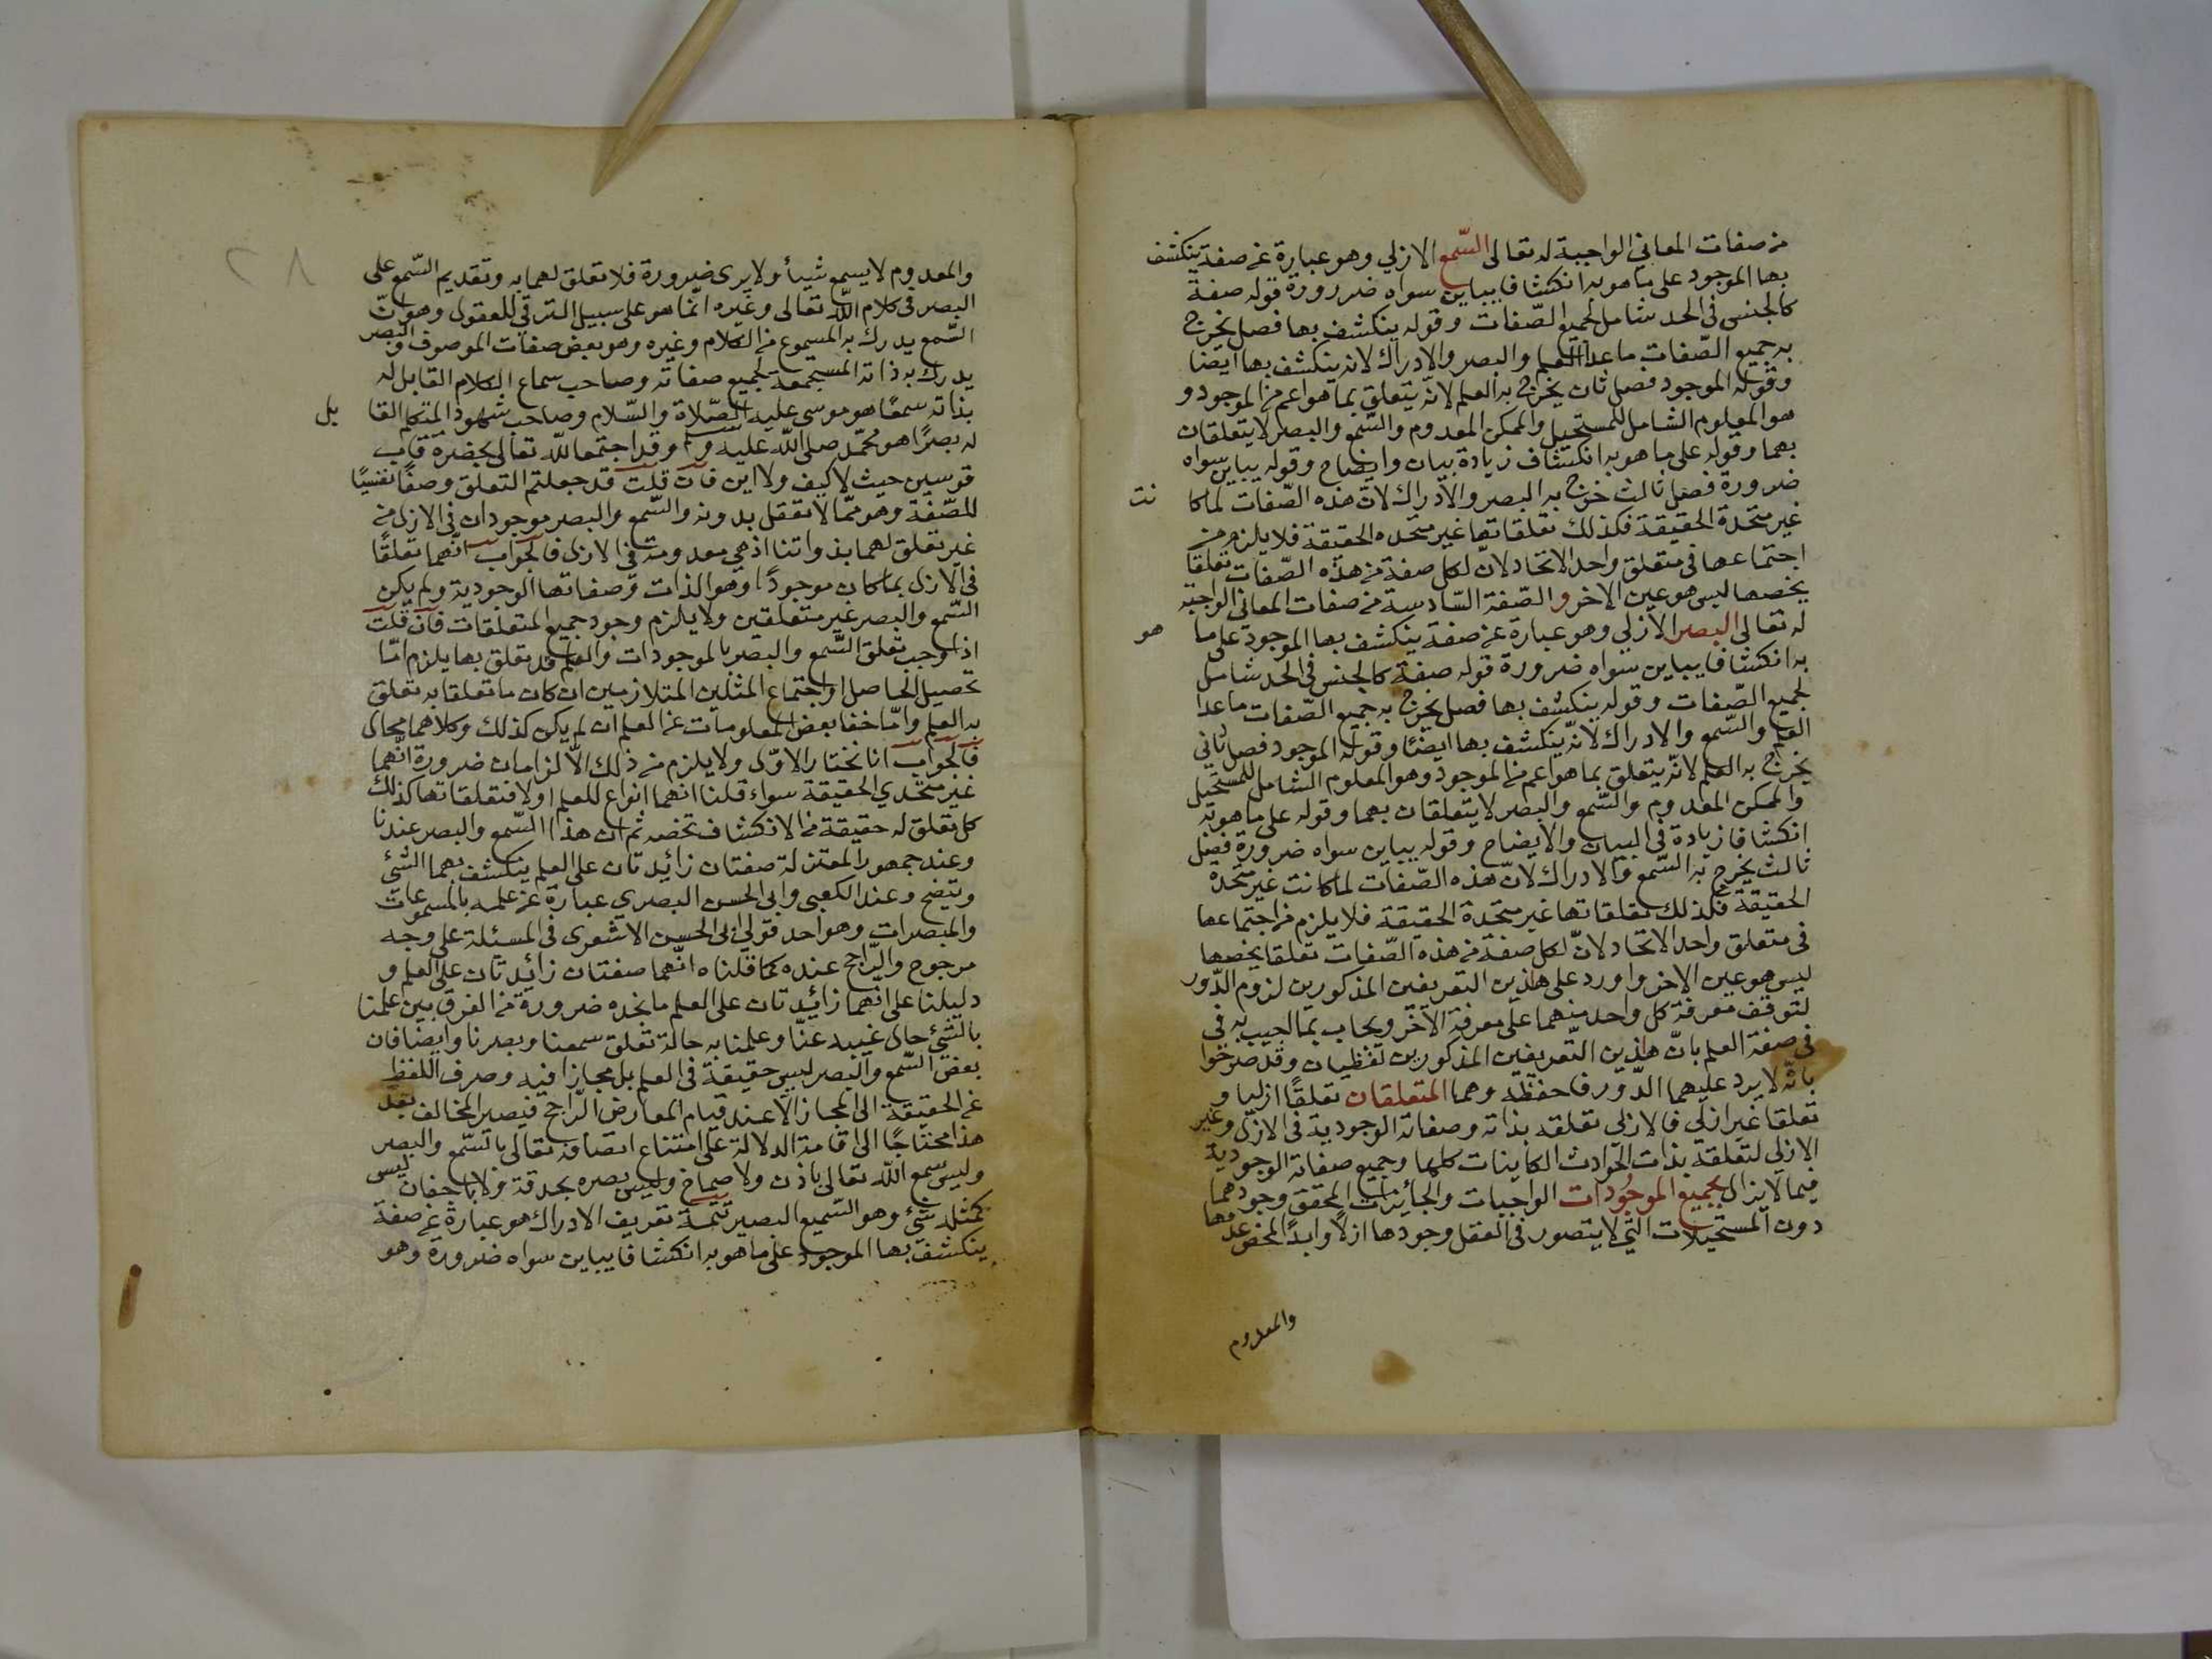 من صفات المعاني الواجبة له تعالى السّمع الازلي وهو عبارة عن صفة ينكشف
بها الموجود على ما هو به انكشافا يباين سواه ضرورة قوله صفة
كالجنس في الحد شامل لجميع الصّفات وقوله ينكشف بها فصل يخرج
به جميع الصّفات ماعدا العلم والبصر والادراك لانه ينكشف بها ايضا
وقوله الموجود فصل ثان يخرج به العلم لانّه يتعلق بما هو اعم من الموجود و
هو المعلوم الشامل للمستحيل والممكن المعدوم والسّمع والبصر لا يتعلقان
بهما وقوله على ما هو به انكشاف زيادة بيان وايضاح وقوله يباين سواه
ضرورة فصل ثالث خرج به البصر والادراك لانّ هذه الصّفات لما كا نت
غير متحدة الحقيقة فكذلك تعلقاتها غير متحده الحقيقة فلا يلزم من
اجتماعها في متعلق واحد الاتحاد لانّ لكل صفة من هذه الصّفات تعلقا
يخصها ليس هو عين الاخر والصّفة السّادسة من صفات المعاني الواجبه
له تعالى البصر الازلي وهو عبارة عن صفة ينكشف بها الموجود على ما هو
به انكشافا يباين سواه ضرورة قوله صفة كالجنس في الحد شامل
لجميع الصّفات وقوله ينكشف بها فصل يخرج به جميع الصّفات ماعدا
العلم والسّمع والادراك لانّه ينكشف بها ايضًا وقوله الموجود فصل ثاني
يخرج به العلم لانّه يتعلق بما هو اعم من الموجود وهو المعلوم الشامل للمستحيل
والممكن المعدوم والسّمع والبصر لا يتعلقان بهما وقوله على ما هو به
انكشافا زيادة في البيان والايضاح وقوله يباين سواه ضرورة فصل
ثالث يخرج به السّمع والادراك لانّ هذه الصّفات لما كانت غير متحدة
الحقيقة فكذلك تعلقاتها غير متحدة الحقيقة فلا يلزم من اجتماعها
في متعلق واحد الاتحاد لانّ لكل صفة من هذه الصّفات تعلقا يخصها
ليس هو عين الاخر واورد على هاذين التعريفين المذكورين لزوم الدّور
لتوقف معرفة كل واحد منهما على معرفة الآخر ويجاب بما اجيب به في
في صفة العلم بانّ هاذين التّعريفين المذكورين لفظيان وقد صرّحوا
بانّه لا يرد عليهما الدّور فاحفظه وهما المتعلقان تعلقًا ازليا و
تعلقا غير ازلي فالازلي تعلقه بذاته وصفاته الوجودية في الازل وغير
الازلي لتعلقه بذات الحوادث الكاينات كلها وجميع صفاته الوجودية
فيما لا يزال بجميع الموجودات الواجبات والجائزات المحقق وجودهما
دون المستحيلات التي لا يتصور في العقل وجودها ازلًا وابدًا لمحض عدمها
والمعدوم
٢٨
والمعدوم لا يسمع شيأ ولا يرى ضرورة فلا تعلق لهما به وتقديم السّمع على
البصر في كلام اللّه تعالى وغيره انّما هو على سبيل الترقي للعقول وهو انّ
السّمع يدرك به المسموع من الكلام وغيره وهو بعض صفات الموصوف والبصر
يدرك به ذاته المستجمعة لجميع صفاته وصاحب سماع الكلام القابل له
بذاته سمعًا هو موسى عليه الصّلاة والسّلام وصاحب شهود المتكلم القا بل
له بصرًا هو محمّد صلى اللّه عليه وسلم وقد اجتمعا للّه تعالى بحضرة قاب
قوسين حيث لا كيف ولا اين فان قلت قد جعلتم التعلق وصفًا نفسيًا
للصّفة وهو ممّا لا تعقل بدونه والسّمع والبصر موجودان في الازل من
غير تعلق لهما بذواتنا اذ هي معدومة في الازل فالجواب انّهما تعلقًا
في الازل بما كان موجودًا وهو الذات وصفاتها الوجودية ولم يكن
السّمع والبصر غير متعلقين ولا يلزم وجود جميع المتعلقات فان قلت
اذا وجب تعلق السّمع والبصر بالموجودات والعلم قد تعلق بها يلزم امّا
تحصيل الحاصل او اجتماع المثلين المتلازمين ان كان ما تعلقا به تعلق
به العلم وامّا خفا بعض المعلومات عن العلم ان لم يكن كذلك وكلاهما محال
فالجواب انا نختار الاوّل ولا يلزم من ذلك الّا لزامان ضرورة انّهما
غير متحدي الحقيقة سواء قلنا انهما انواع للعلم او لا فتعلقاتها كذلك
كل تعلق له حقيقة من الانكشاف تخصه ثم ان هذا السّمع والبصر عندنا
وعند جمهور المعتزلة صفتان زائدتان على العلم ينكشف بهما الشئ
ويتضح وعند الكعبي وابي الحسن البصري عبارة عن علمه بالمسموعات
والمبصرات وهو احد قولي ابي الحسن الاشعري في المسئلة على وجه
مرجوح والرّاجح عنده كما قلناه انّهما صفتان زائدتان على العلم و
دليلنا على انّهما زائدتان على العلم ما نجده ضرورة من الفرق بين علمنا
بالشئ حال غيبه عنّا وعلمنا به حالة تعلق سمعنا وبصرنا وايضا فان
بعض السّمع والبصر ليس حقيقة في العلم بل مجازا فيه وصرف اللفظ
عن الحقيقة الى المجاز الّا عند قيام المعارض الرّاجح فيصير المخالف بعد
هذا محتاجًا الى اقامة الدلالة على امتناع اتصافه تعالى بالسّمع والبصر
وليس سمع اللّه تعالى باذن ولا صماخ وليس بصره بحدقة ولا باجفان ليس
كمثله شئ وهو السّميع البصير تتمّة تعريف الادراك هو عبارة عن صفة
ينكشف بها الموجود على ما هو به انكشافا يباين سواه ضرورة وهو